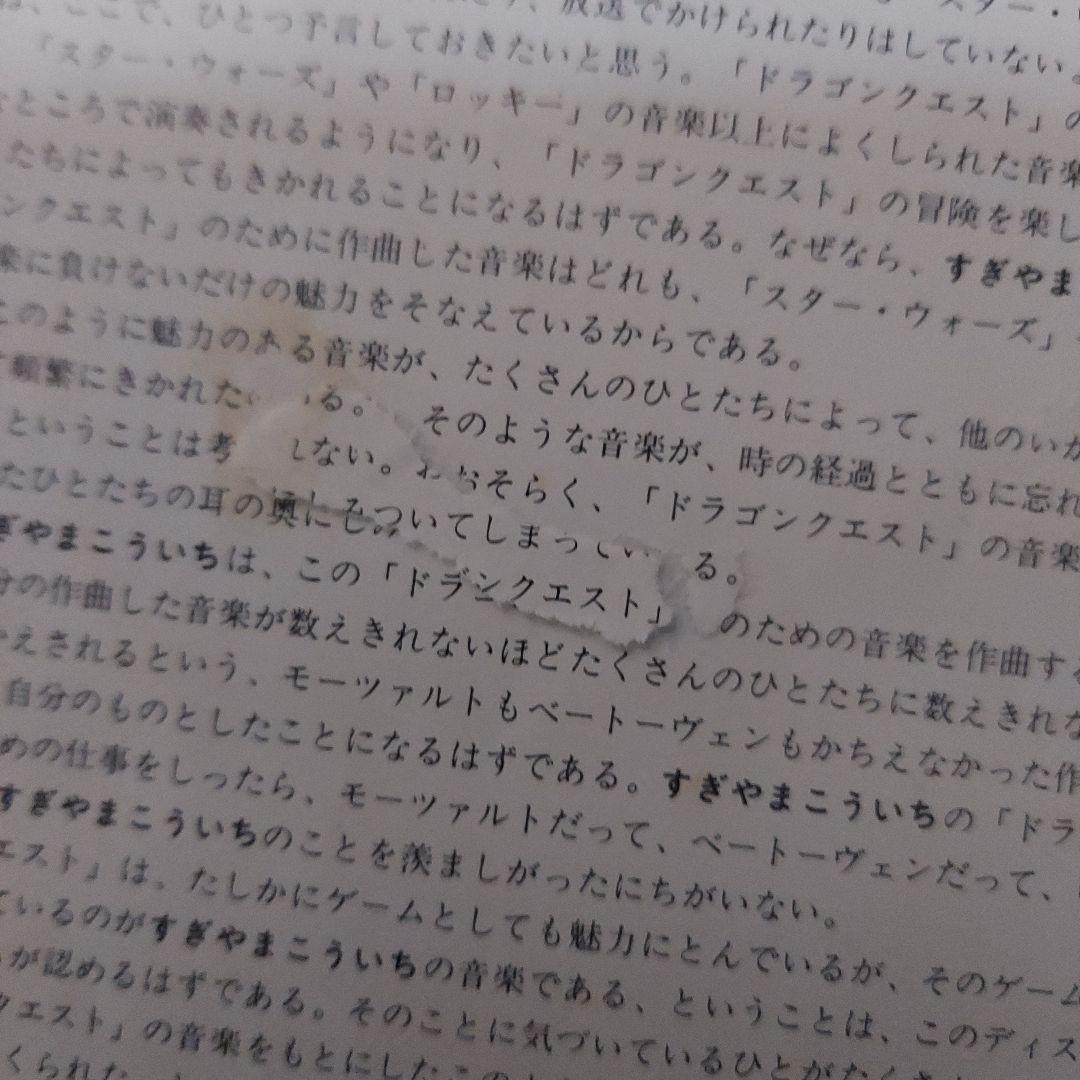 放送でかけられたりはしていない。
、ここで、ひとつ予言しておきたいと思う。「ドラゴンクエスト」の
「スター・ウォーズ」や「ロッキー」の音楽以上によくしられた音楽
ところで演奏されるようになり、「ドラゴンクエスト」の冒険を楽し
たちによってもきかれることになるはずである。なぜなら、すぎやま
ンクエスト」のために作曲した音楽はどれも、「スター・ウォーズ」
楽に負けないだけの魅力をそなえているからである。
このように魅力のある音楽が、たくさんのひとたちによって、他のいか
頻繁にきかれた る。 そのような音楽が、時の経過とともに忘れ
ということは考 しない。 おそらく、「ドラゴンクエスト」の音楽
たひとたちの耳の奥に ついてしまって る。
ぎやまこういちは、この「ドラ ンクエスト」 のための音楽を作曲する
分の作曲した音楽が数えきれないほどたくさんのひとたちに数えきれな
かえされるという、モーツァルトもベートーヴェンもかちえなかった作
自分のものとしたことになるはずである。すぎやまこういちの「ドラ
めの仕事をしったら、モーツァルトだって、ベートーヴェンだって、
すぎやまこういちのことを羨ましがったにちがいない。
エスト」は、たしかにゲームとしても魅力にとんでいるが、そのゲーム
ているのがすぎやまこういちの音楽である、ということは、このディス
が認めるはずである。そのことに気づいているひとがたくさん
クエスト」の音楽をもとにしたこの
くられた